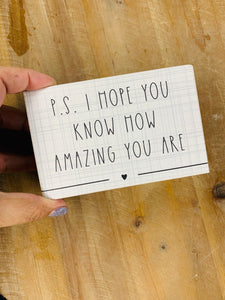 P.S. I HOPE YOU
KNOW HOW
AMAZING YOU ARE